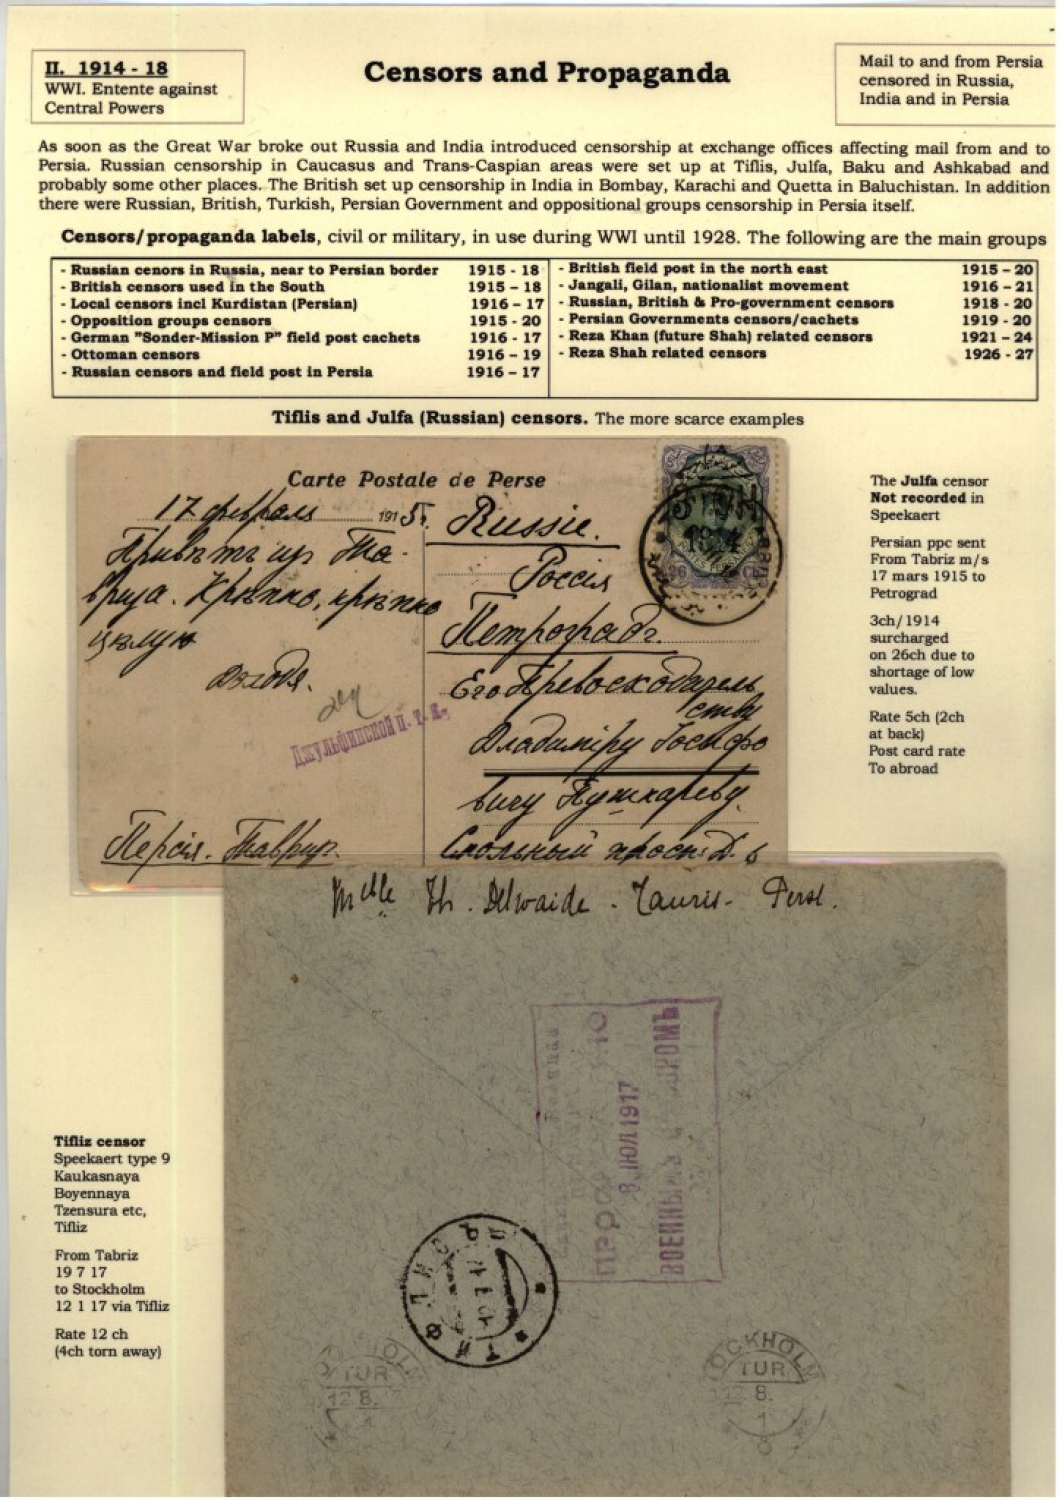 II. 1914 - 18
WWI. Entente against
Central Powers
Censors and Propaganda
Mail to and from Persia
censored in Russia,
India and in Persia
As soon as the Great War broke out Russia and India introduced censorship at exchange offices affecting mail from and to
Persia. Russian censorship in Caucasus and Trans-Caspian areas were set up at Tiflis, Julfa, Baku and Ashkabad and
probably some other places. The British set up censorship in India in Bombay, Karachi and Quetta in Baluchistan. In addition
there were Russian, British, Turkish, Persian Government and oppositional groups censorship in Persia itself.
Censors/propaganda labels, civil or military, in use during WWI until 1928. The following are the main groups
- Russian cenors in Russia, near to Persian border 1915 - 18
- British censors used in the South 1915 – 18
- Local censors incl Kurdistan (Persian) 1916 – 17
- Opposition groups censors 1915 - 20
- German "Sonder-Mission P" field post cachets 1916 - 17
- Ottoman censors 1916 – 19
- Russian censors and field post in Persia 1916 – 17
- British field post in the north east 1915 – 20
- Jangali, Gilan, nationalist movement 1916 – 21
- Russian, British & Pro-government censors 1918 - 20
- Persian Governments censors/cachets 1919 - 20
- Reza Khan (future Shah) related censors 1921 – 24
- Reza Shah related censors 1926 - 27
Tiflis and Julfa (Russian) censors. The more scarce examples
Carte Postale de Perse
17 февраля 1915г.
Привѣтъ из Та-
вриза. Крѣпко, крѣпко
цѣлую
Персія. Тавриз.
Russie.
Россія
Петроградъ.
Его Превосходитель
ству
Владиміру Іосифо
вичу Пушкареву.
Смольный просп. Д. 6
26 Ch
Джульфинской П. Т. К.
The Julfa censor
Not recorded in
Speekaert
Persian ppc sent
From Tabriz m/s
17 mars 1915 to
Petrograd
3ch/1914
surcharged
on 26ch due to
shortage of low
values.
Rate 5ch (2ch
at back)
Post card rate
To abroad
Mlle Th. Delwaide - Tauris - Perse.
8 ІЮЛ 1917
ТИФЛИСЪ
STOCKHOLM
TUR
12 8.
STOCKHOLM
TUR
12 8.
1
Tifliz censor
Speekaert type 9
Kaukasnaya
Boyennaya
Tzensura etc,
Tifliz
From Tabriz
19 7 17
to Stockholm
12 1 17 via Tifliz
Rate 12 ch
(4ch torn away)